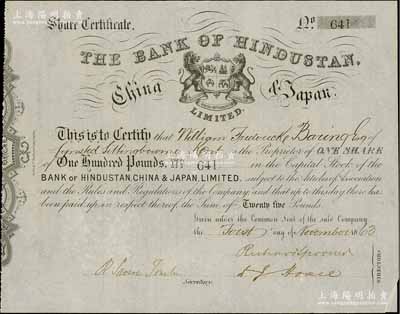 上海陽明拍賣
Share Certificate.
No 641
THE BANK OF HINDUSTAN,
China & Japan
LIMITED.
This is to Certify that William Frederick Baring Esq
Sittingbourne Kent is the Proprietor of ONE SHARE
of One Hundred Pounds, No 641 in the Capital Stock of the
BANK OF HINDUSTAN, CHINA & JAPAN, LIMITED, subject to the Articles of Association
and the Rules and Regulations of the Company, and that up to this day there has
been paid up in respect thereof, the Sum of Twenty five Pounds
Given under the Common Seal of the said Company
the First day of November 1863